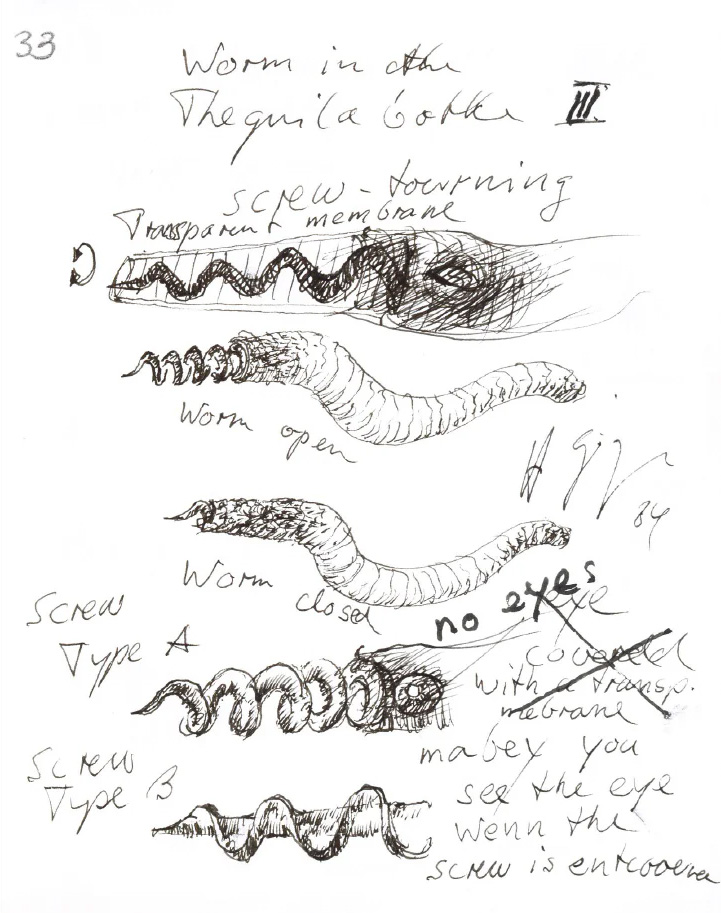 33
Worm in the
Thequila bottle III.
screw-tourning
Transparent membrane
Worm open
H Giger
84
Worm closed
no eyes
Screw
Type A
eye
covered
with a transp.
mebrane
mabey you
see the eye
wenn the
screw is entcovered
Screw
Type B